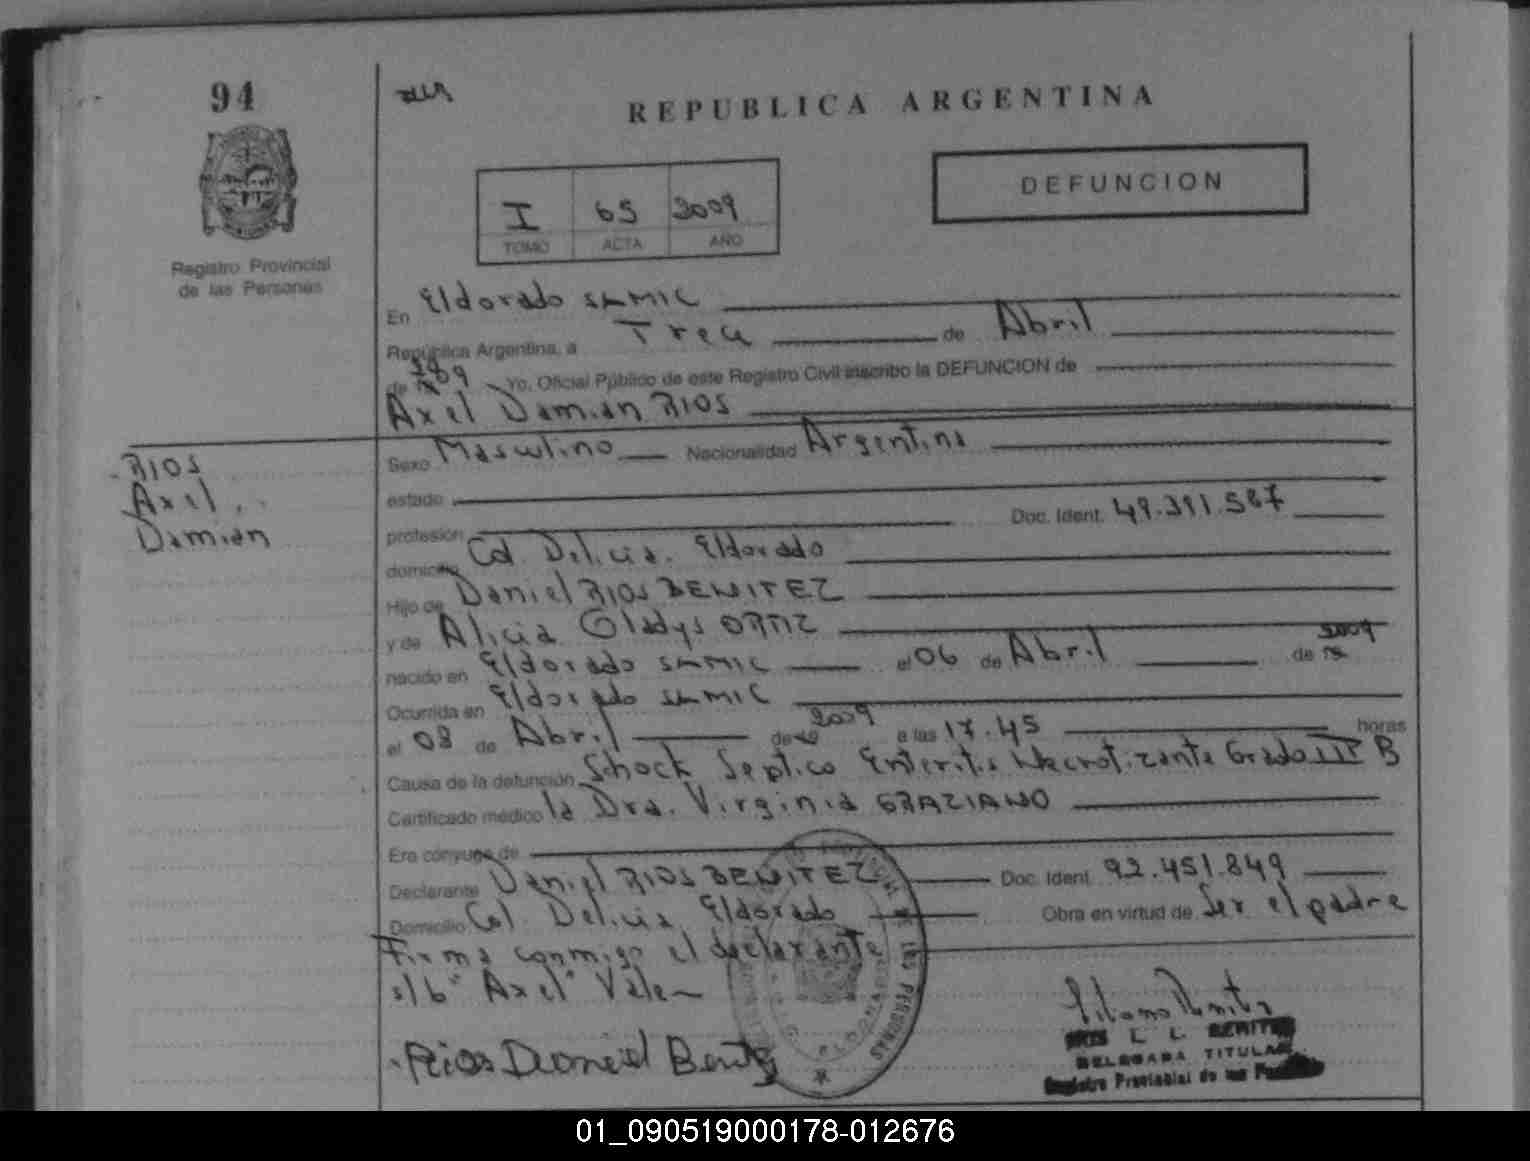 94
REPUBLICA ARGENTINA
DEFUNCION
I 65 2009
TOMO ACTA AÑO
Registro Provincial
de las Personas
En Eldorado SAMIC
República Argentina, a Trece de Abril
de 2009 Yo, Oficial Público de este Registro Civil inscribo la DEFUNCION de
Axel Damian RIOS
RIOS
Axel
Damian
Sexo Masculino Nacionalidad Argentina
estado
profesión Doc. Ident. 49.391.587
domicilio Col. Delicia. Eldorado
Hijo de Daniel RIOS BENITEZ
y de Alicia Gladys ORTIZ
nacido en Eldorado SAMIC el 06 de Abril de 2009
Ocurrida en Eldorado SAMIC
el 08 de Abril de 2009 a las 17.45 horas
Causa de la defunción Schock Septico Enteritis Necrotizante Grado III B
Certificado médico la Dra. Virginia GRAZIANO
Era cónyuge de
Declarante Daniel RIOS BENITEZ Doc. Ident. 92.451.849
Domicilio Col. Delicia, Eldorado Obra en virtud de Ser el padre
Firma conmigo el declarante
s/b "Axel" Vale
Rios Daniel Benitez
L. L. BENITEZ
DELEGADA TITULAR
Registro Provincial de las
DE LAS PERSONAS
01_090519000178-012676